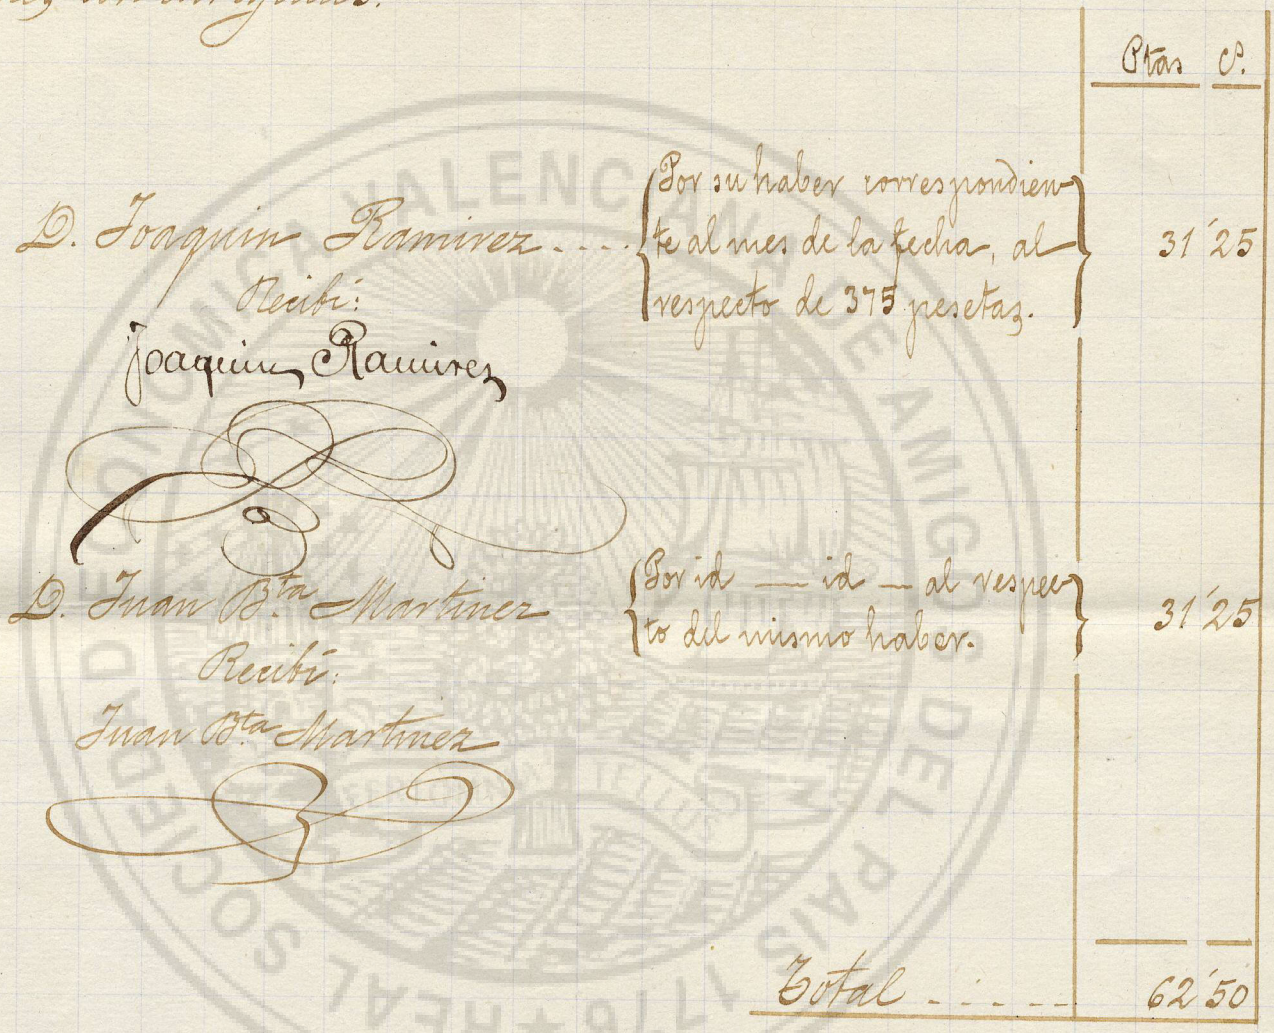 Ptas Cs.
D. Joaquin Ramirez .... Por su haber correspondien-
te al mes de la fecha, al 31'25
respecto de 375 pesetas.
Recibí:
Joaquin Ramirez
D. Juan Bta Martinez Por id — id — al respec-
to del mismo haber. 31'25
Recibí:
Juan Bta Martinez
Total ..... 62'50
REAL SOCIEDAD ECONOMICA VALENCIANA DE AMIGOS DEL PAIS 1776